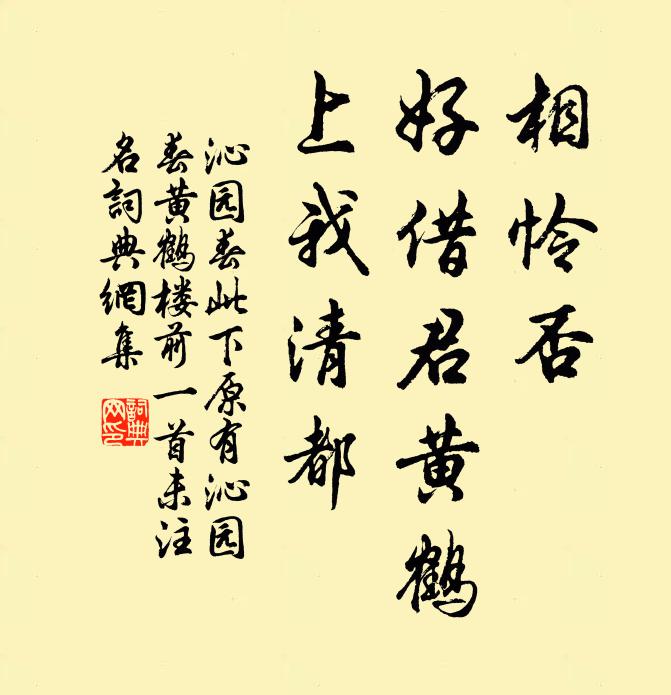 相怜否
好借君黄鹤
上我清都
沁园春此下原有沁园
春黄鹤楼前一首未注
名词典網集
詞典網印